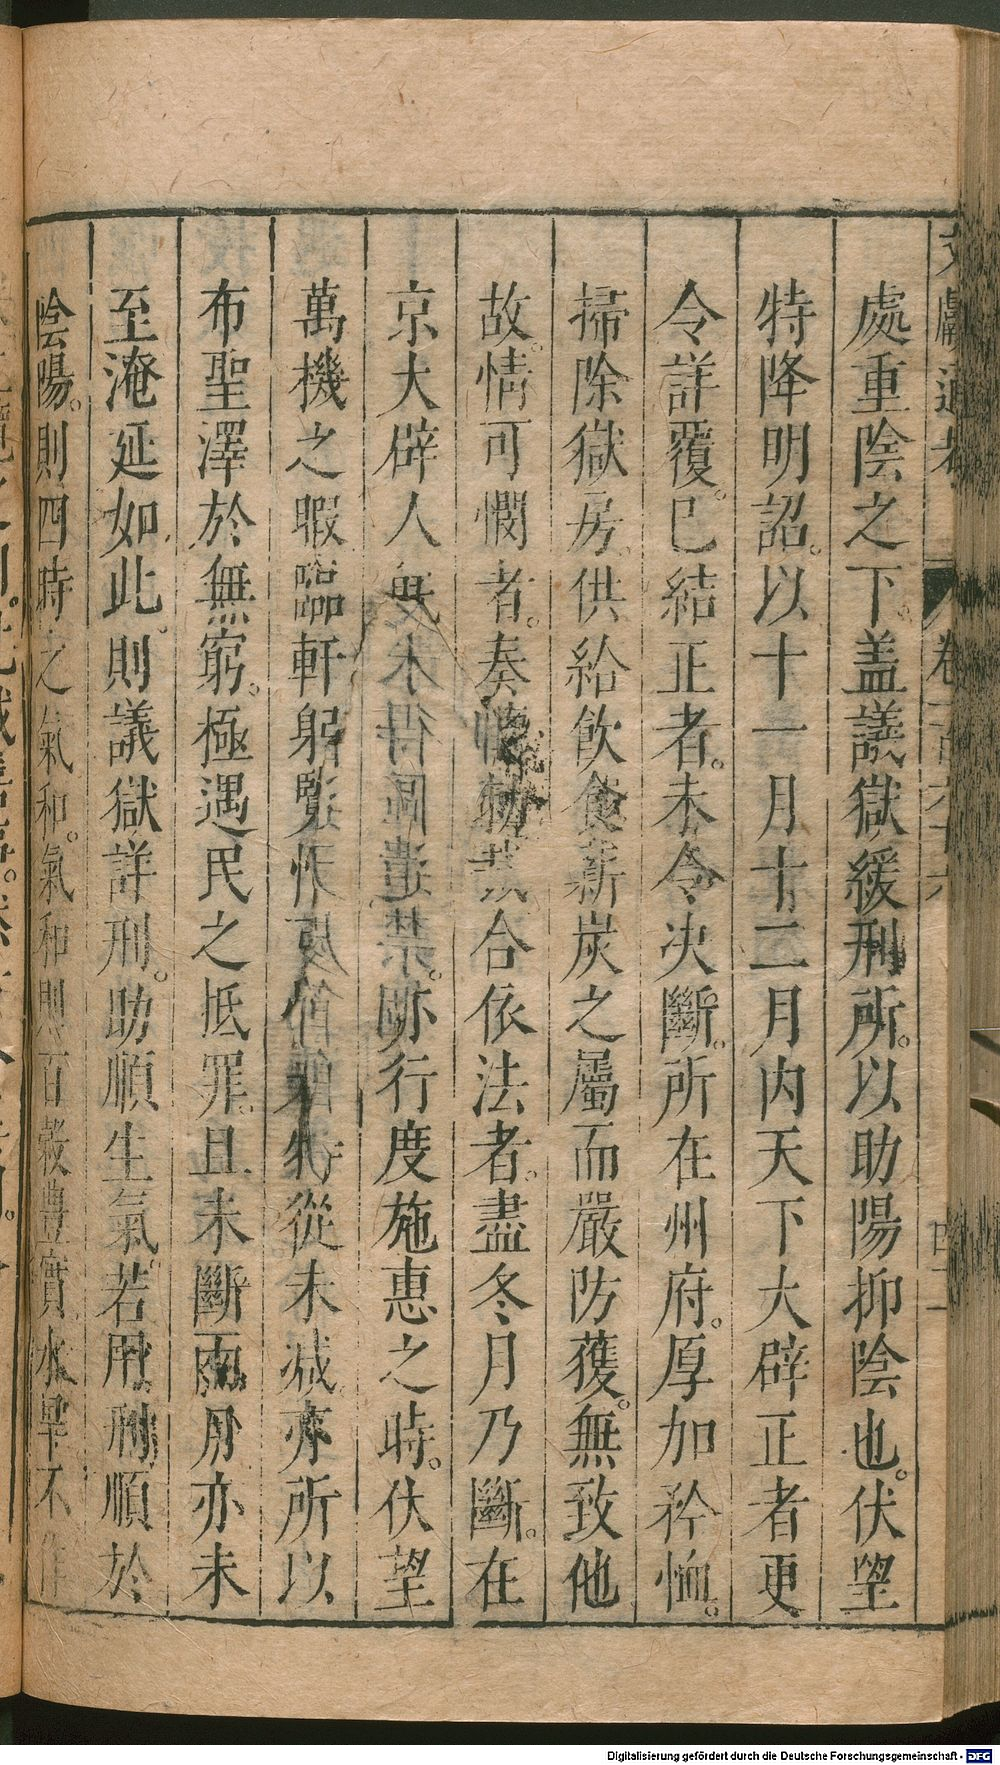 文獻通考 卷一百六十六 四十一
處重陰之下。盖議獄緩刑所。以助陽抑陰也。伏望
特降明詔。以十一月十二月内天下大辟正者更
令詳覆。已結正者。未令决斷。所在州府。厚加矜恤。
掃除獄房。供給飲食薪炭之屬而嚴防護。無致他
故。情可憫者。奏聽勑裁。合依法者。盡冬月乃斷。在
京大辟人既不得區遣禁。亦行度施惠之時。伏望
萬機之暇臨軒躬覽情可憫者特從末减。亦所以
布聖澤於無窮。極遇民之抵罪。且未斷兩月亦未
至淹延如此。則議獄詳刑。助順生氣。若用刑順於
陰陽。則四時之氣和。氣和則百穀豊實水旱不作